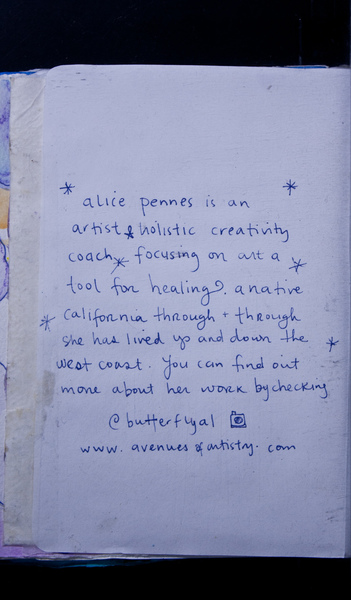 alice pennes is an
artist & holistic creativity
coach, focusing on art a
tool for healing. a native
california through + through
she has lived up and down the
west coast. You can find out
more about her work by checking
@butterflyal
www.avenues&artistry.com